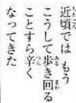 近頃では もう
こうして歩き回る
ことすら辛く
なってきた